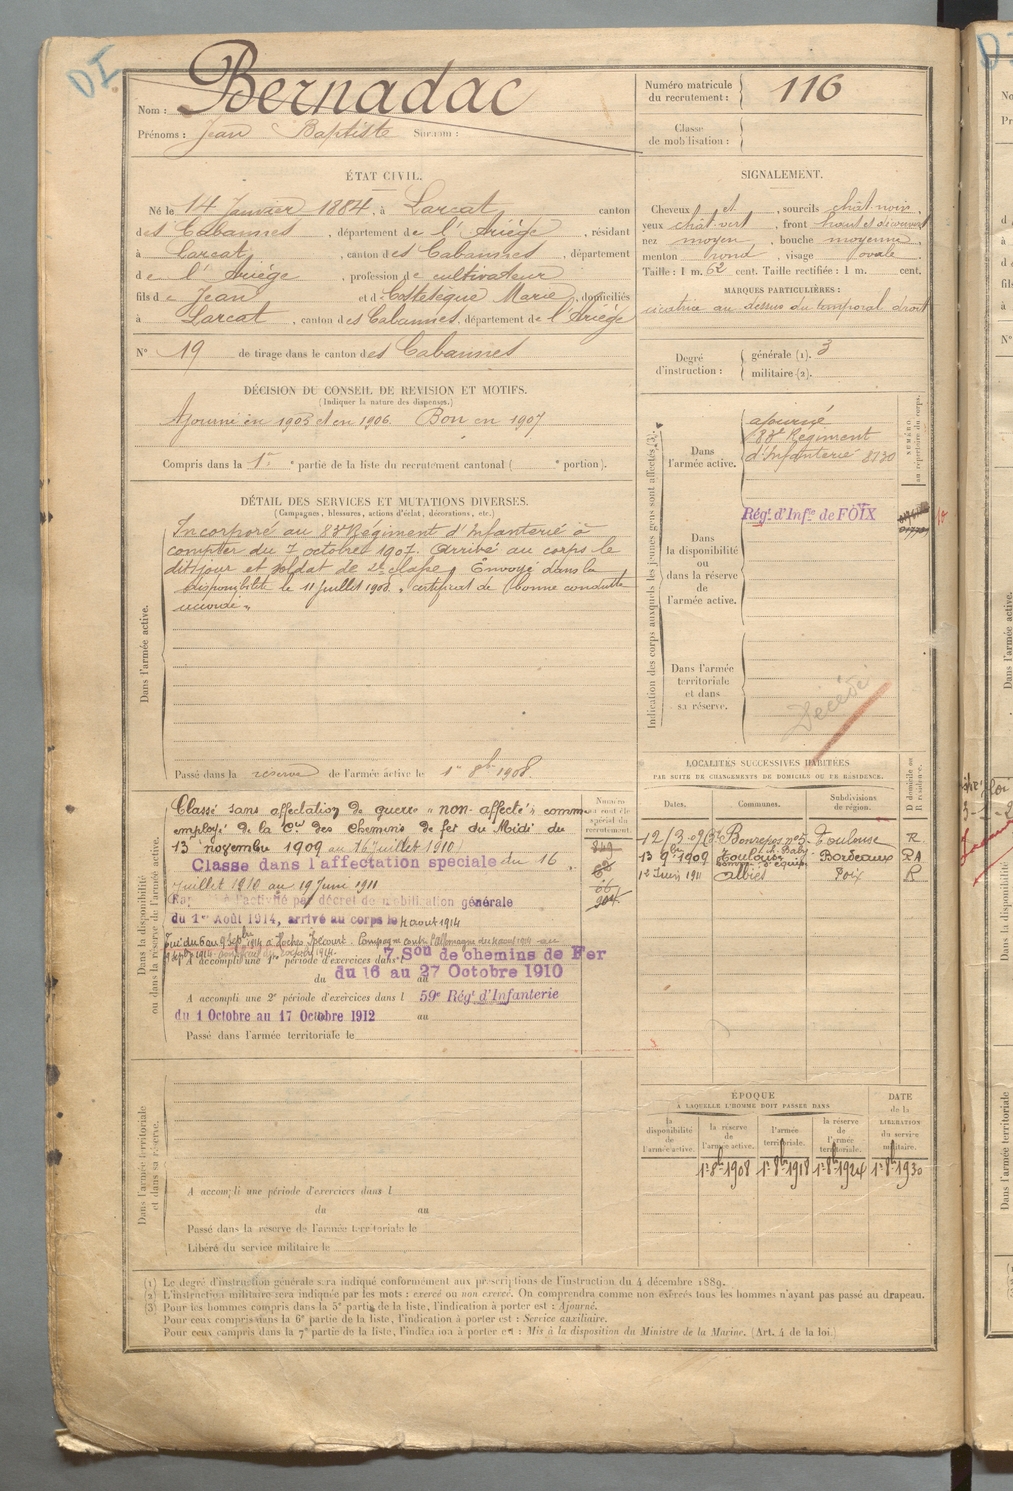 DI
Nom : Bernadac
Prénoms : Jean Baptiste Surnom :
Numéro matricule
du recrutement : 116
Classe
de mobilisation :
ÉTAT CIVIL.
Né le 14 Janvier 1884, à Larcat canton
des Cabannes, département de l'Ariège, résidant
à Larcat, canton des Cabannes, département
de l'Ariège, profession de cultivateur
fils de Jean et d Marie, domiciliés
à Larcat, canton des Cabannes, département de l'Ariège
N° 19 de tirage dans le canton des Cabannes
SIGNALEMENT.
Cheveux et, sourcils chât. noirs,
yeux chât. vert, front haut et découvert
nez moyen, bouche moyenne,
menton rond, visage ovale.
Taille : 1 m. 62 cent. Taille rectifiée : 1 m. cent.
MARQUES PARTICULIÈRES :
cicatrice au dessus du temporal droit
Degré
d'instruction :
générale (1). 3
militaire (2).
DÉCISION DU CONSEIL DE REVISION ET MOTIFS.
(Indiquer la nature des dispenses.)
Ajourné en 1905 et en 1906. Bon en 1907
Compris dans la 1re partie de la liste du recrutement cantonal ( e portion).
DÉTAIL DES SERVICES ET MUTATIONS DIVERSES.
(Campagnes, blessures, actions d'éclat, décorations, etc.)
Dans l'armée active.
Incorporé au 83e Régiment d'Infanterie à
compter du 7 octobre 1907. Arrivé au corps le
dit jour et soldat de 2e classe. Envoyé dans la
disponibilité le 11 Juillet 1908. "certificat de bonne conduite
accordé"
Passé dans la réserve de l'armée active le 1er 8bre 1908.
Indication des corps auxquels les jeunes gens sont affectés (3).
NUMÉRO
au répertoire du corps.
Dans
l'armée active.
ajourné
83e Régiment
d'Infanterie 8130
Régt d'Infie de FOIX
Dans
la disponibilité
ou
dans la réserve
de
l'armée active.
Dans l'armée
territoriale
et dans
sa réserve.
Décédé
Dans la disponibilité
ou dans la réserve de l'armée active.
Numéro
spécial du
recrutement.
Classé sans affectation de guerre "non-affecté" comme
employé de la Cie des Chemins de fer du Midi du
13 novembre 1909 au 16 juillet 1910.
Classe dans l'affectation speciale du 16
Juillet 1910 au 19 Juin 1911
à l'activité par décret de mobilisation générale
du 1er Août 1914, arrivé au corps le 4 aout 1914
A accompli une 1re période d'exercices dans l 7 Son de chemins de Fer
du 16 au 27 Octobre 1910
A accompli une 2e période d'exercices dans l 59e Régt d'Infanterie
du 1 Octobre au 17 Octobre 1912 au
Passé dans l'armée territoriale le
LOCALITÉS SUCCESSIVES HABITÉES
PAR SUITE DE CHANGEMENTS DE DOMICILE OU DE RÉSIDENCE.
Dates. Communes. Subdivisions
de région. D domicile ou
R résidence.
12/3-09 Bonrepos n° 5 Toulouse R
13 9bre 1909 Toulouse Bordeaux RA
12 Juin 1911 Albiès Foix R
ÉPOQUE
À LAQUELLE L'HOMME DOIT PASSER DANS
DATE
de la
LIBÉRATION
du service
militaire.
la
disponibilité
de
l'armée active.
la réserve
de
l'armée active.
l'armée
territoriale.
la réserve
de
l'armée
territoriale.
1er 8bre 1908 1er 8bre 1918 1er 8bre 1924 1er 8bre 1930
Dans l'armée territoriale
et dans sa réserve.
A accompli une période d'exercices dans l
du au
Passé dans la réserve de l'armée territoriale le
Libéré du service militaire le
(1) Le degré d'instruction générale sera indiqué conformément aux prescriptions de l'instruction du 4 décembre 1889.
(2) L'instruction militaire sera indiquée par les mots : exercé ou non exercé. On comprendra comme non exercés tous les hommes n'ayant pas passé au drapeau.
(3) Pour les hommes compris dans la 5e partie de la liste, l'indication à porter est : Ajourné.
Pour ceux compris dans la 6e partie de la liste, l'indication à porter est : Service auxiliaire.
Pour ceux compris dans la 7e partie de la liste, l'indication à porter est : Mis à la disposition du Ministre de la Marine. (Art. 4 de la loi.)